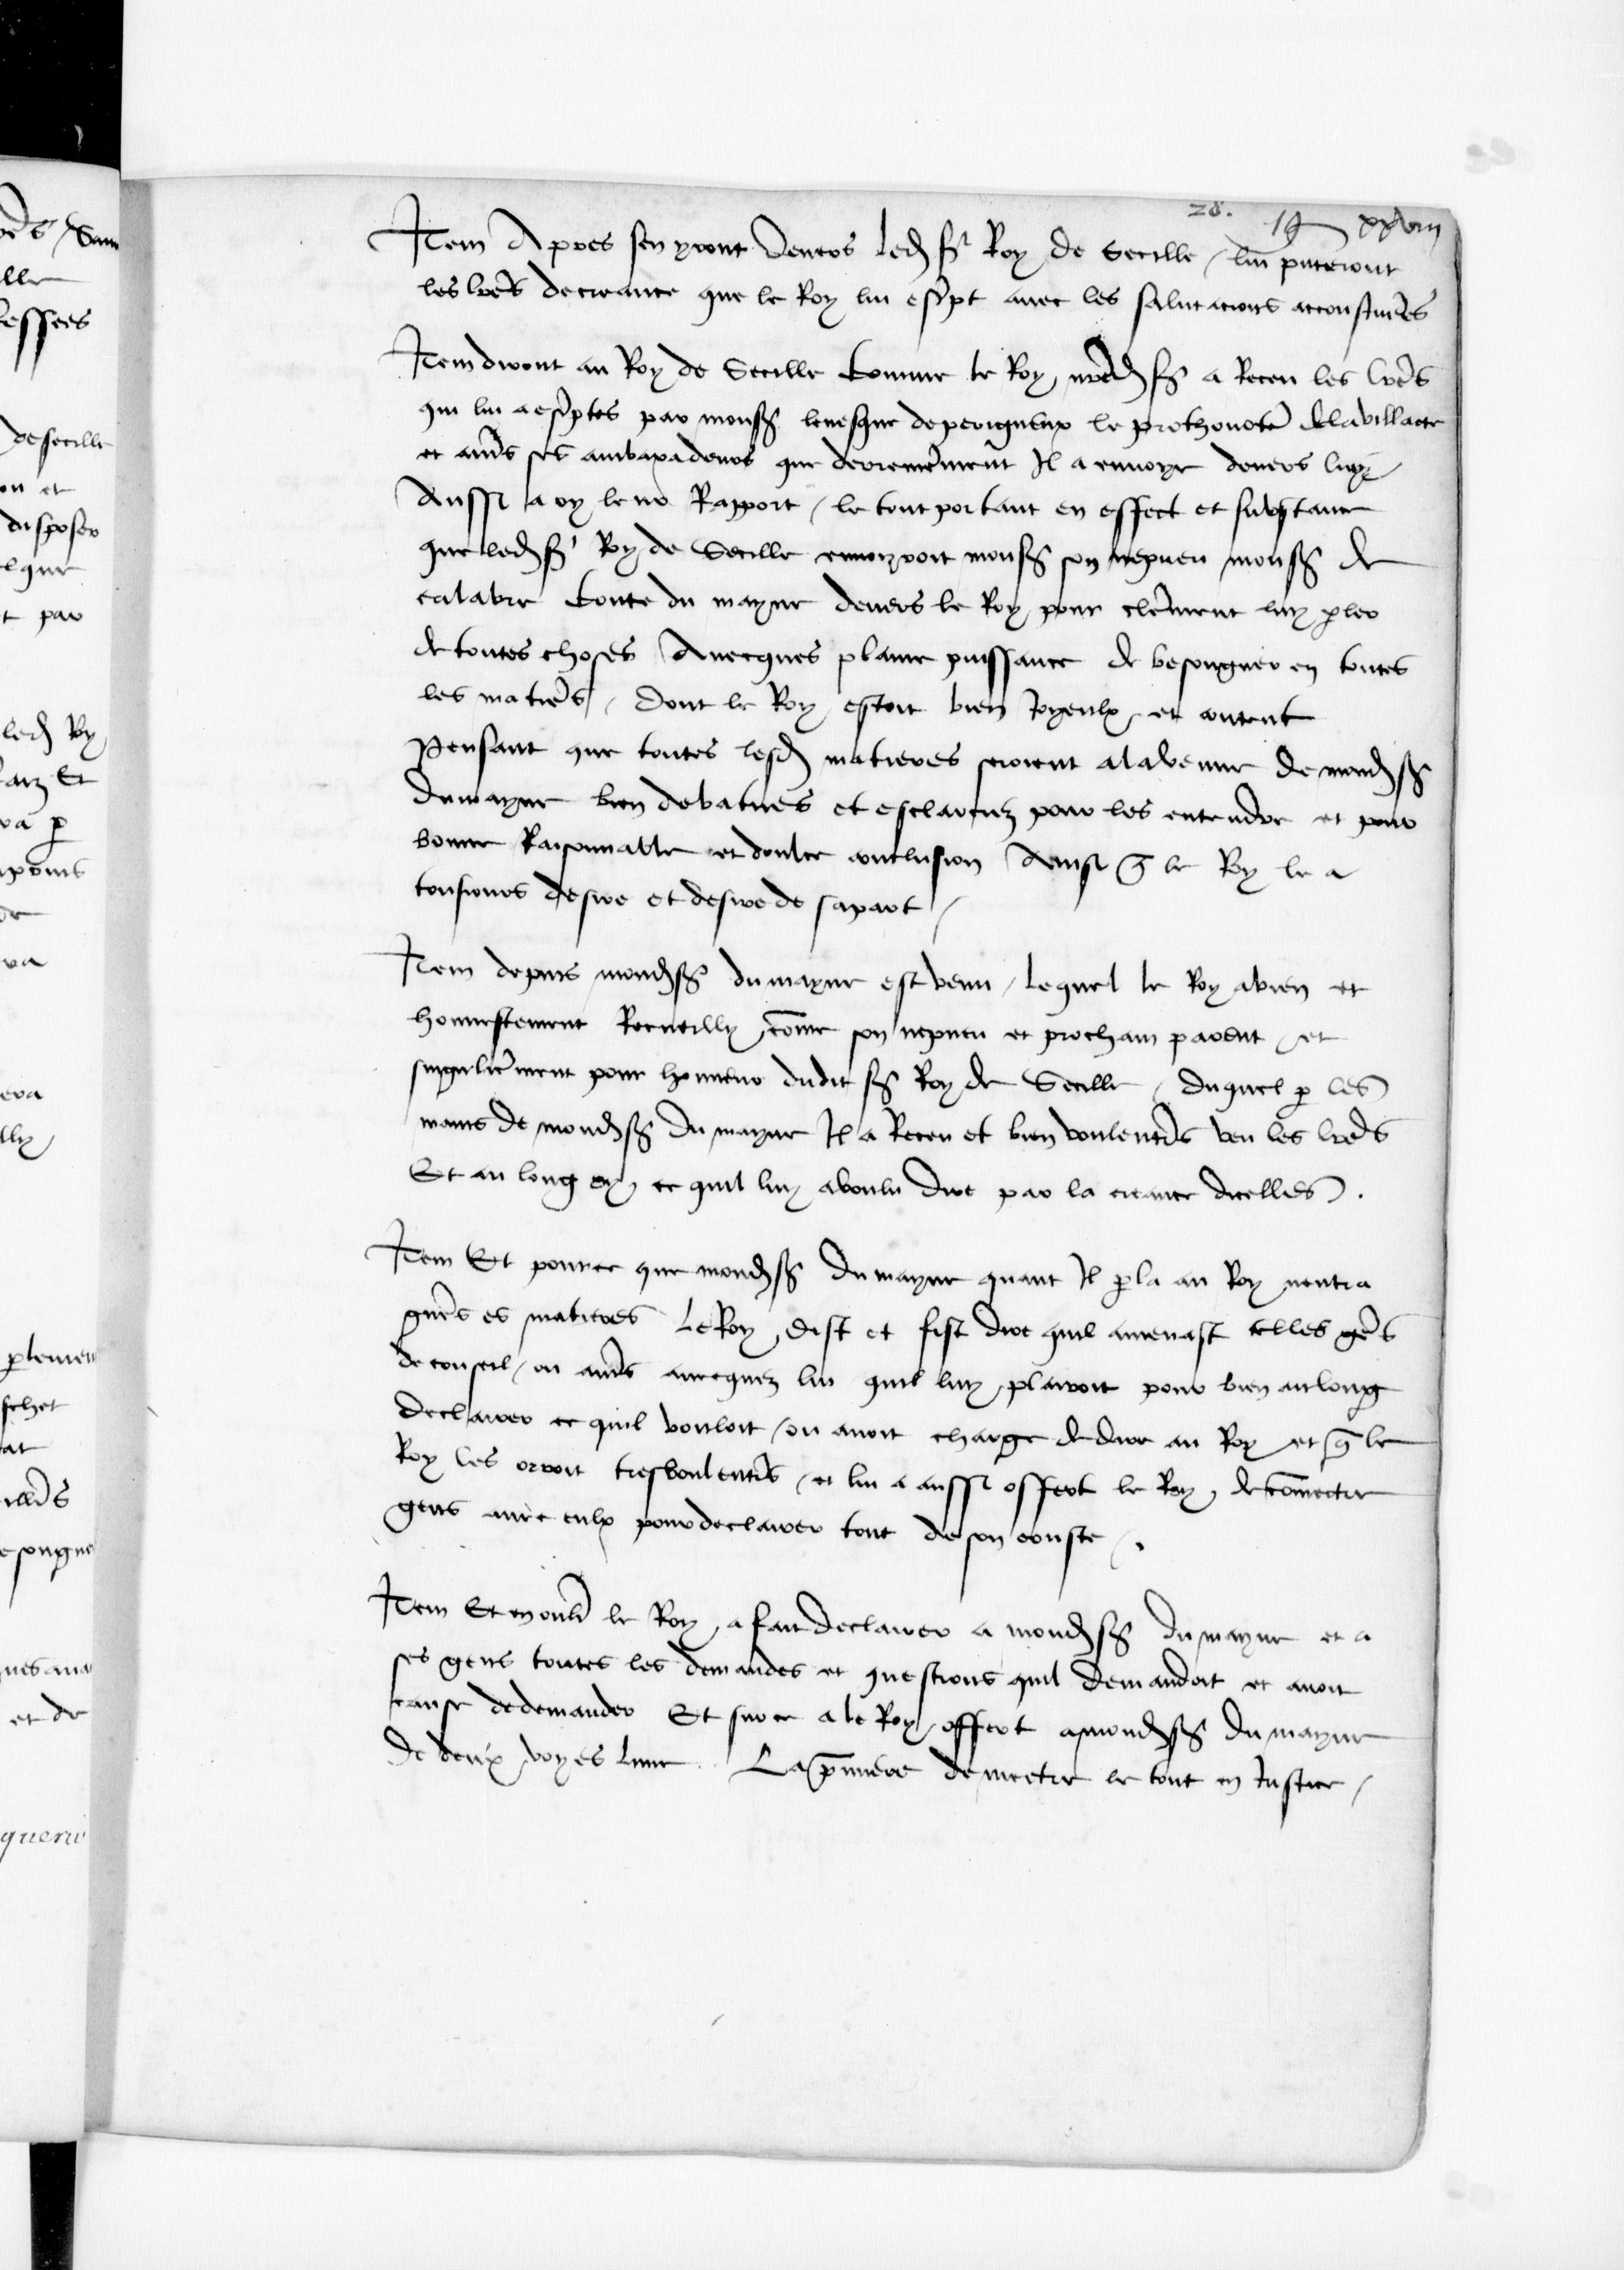 28. 19 xxviii
Item Apres sen yront devers led sr Roy de Secille / lui pnteront
les lres de creance que le Roy lui escript avec les salutacions acoustumees
Item diront au Roy de Secille Comme le Roy nred sr a Receu les lres
qui lui a escriptes par monsr levesque de perigueux le prothonotere de la villacte
et aultres ses ambaxadeurs que derrenierement Il a envoye devers luy /
Aussi a oy leur Rapport / le tout portant en effect et substance
que led sr Roy de Secille envoyoit monsr son nepveu monsr de
calabre Conte du mayne devers le Roy pour clerement luy pler
de toutes choses Avecques plaine puissance de besongner en toutes
les matieres / dont le Roy estoit bien Joyeulx et content
Pensant que toutes lesd matieres seroient a la venue de mond sr
du mayne bien debatues et esclarciez pour les entendre et pour
bonne Raisonnable et doulce conclusion Ainsi q le Roy le a
tousiours desire et desire de sa part /
Item depuis mond sr du mayne est venu / lequel le Roy a bien et
honnestement Recueilly come son nepveu et prochain parent / et
singulierement pour honneur dudit sr Roy de Secille / duquel p les
mains de mond sr du mayne Il a Receu et bien voulentiers veu les lres
Et au long oy ce quil luy a voulu dire par la creance dicelles .
Item Et pource que mond sr du mayne quant Il pla au Roy nentra
gueres es matieres Le Roy dist et fist dire quil amenast telles gens
de conseil / ou aultres avecquez lui quil luy plairoit pour bien au long
declairer ce quil vouloit / ou avoit charge de dire au Roy et q le
Roy les orroit tresvoulentiers / et lui a aussi offert le Roy de comectre
gens avec eulx pour declairer tout de son couste / .
Item Et en oultre le Roy a fait declairer a mond sr du mayne et a
ses gens toutes les demandes et questions quil demandoit et avoit
cause de demander Et sur ce a le Roy offert a mond sr du mayne
de deux voyes lune La premiere de mectre le tout en Justice /